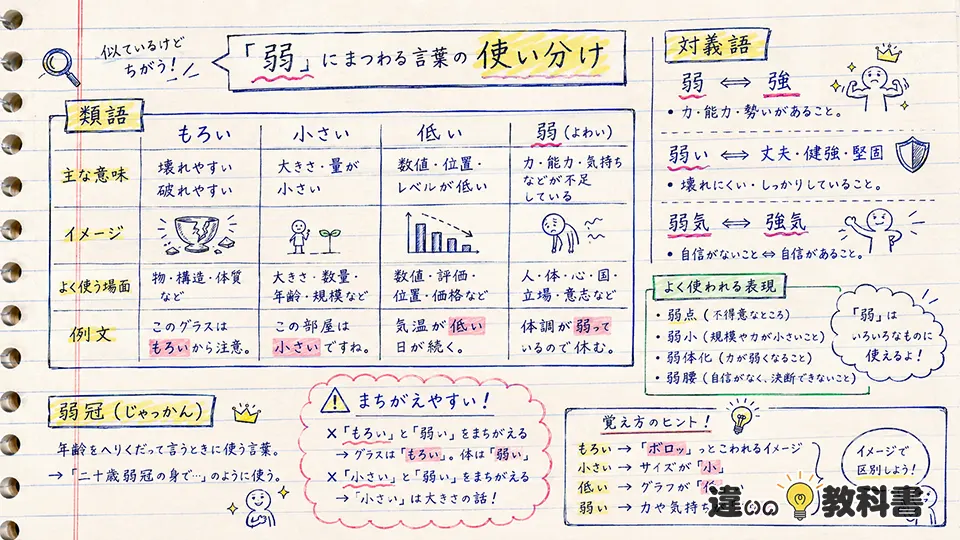 似ているけど
ちがう!
「弱」にまつわる言葉の 使い分け
類語
もろい 小さい 低い 弱(よわい)
主な意味
壊れやすい
破れやすい
大きさ・量が
小さい
数値・位置・
レベルが低い
力・能力・気持ち
などが不足
している
イメージ
よく使う場面
物・構造・体質
など
大きさ・数量・
年齢・規模など
数値・評価・
位置・価格など
人・体・心・国・
立場・意志など
例文
このグラスは
もろいから注意。
この部屋は
小さいですね。
気温が低い
日が続く。
体調が弱って
いるので休む。
対義語
弱 ⇔ 強
・力・能力・勢いがあること。
弱い ⇔ 丈夫・健強・堅固
・壊れにくい・しっかりしていること。
弱気 ⇔ 強気
・自信がないこと ⇔ 自信があること。
よく使われる表現
・弱点(不得意なところ)
・弱小(規模や力が小さいこと)
・弱体化(力が弱くなること)
・弱腰(自信がなく、決断できないこと)
「弱」は
いろいろなものに
使えるよ!
弱冠(じゃっかん)
年齢をへりくだって言うときに使う言葉。
→「二十歳弱冠の身で…」のように使う。
まちがえやすい!
×「もろい」と「弱い」をまちがえる
→グラスは「もろい」。体は「弱い」
×「小さい」と「弱い」をまちがえる
→「小さい」は大きさの話!
覚え方のヒント!
もろい → 「ボロッ」っとこわれるイメージ
小さい → サイズが「小」
低い → グラフが「低
弱い → 力や気持ち
イメージで
区別しよう!
違いの教科書